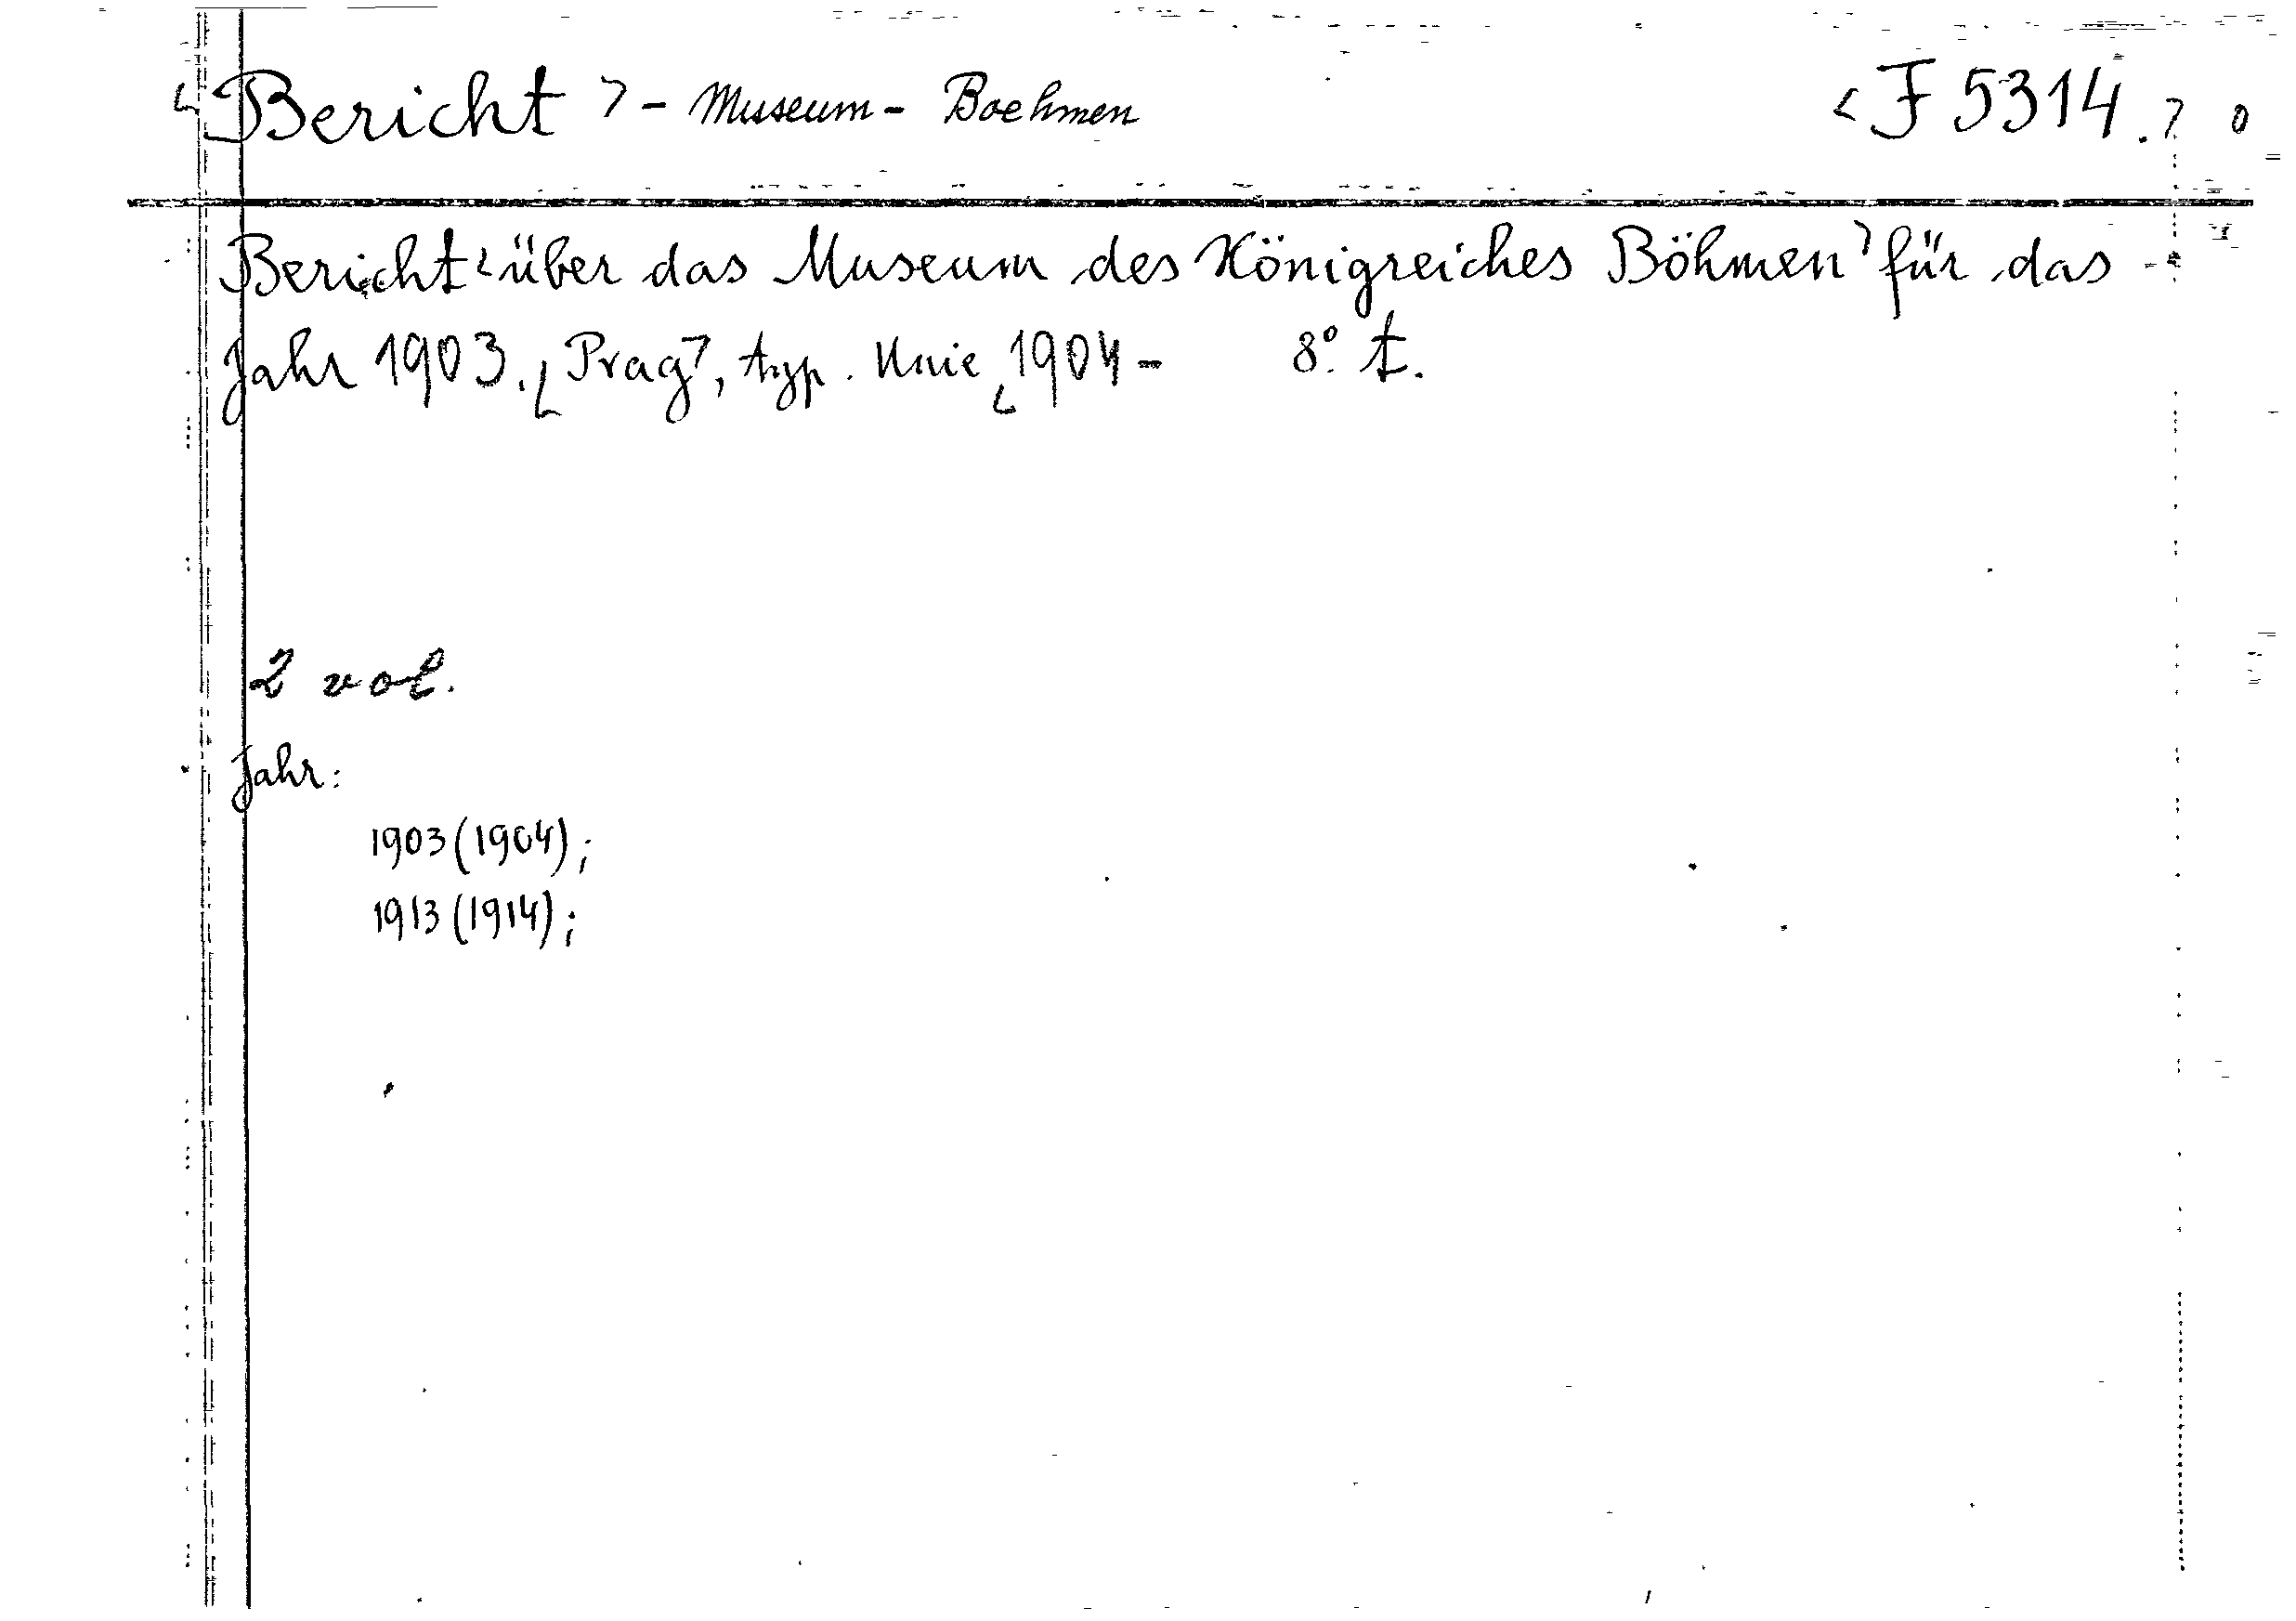 Bericht - Museum - Boehmen F 5314.
Bericht über das Museum des Königreiches Böhmen für das
Jahr 1903. Prag, typ. Unie 1904 - 8° t.
2 vol.
Jahr:
1903 (1904);
1913 (1914);